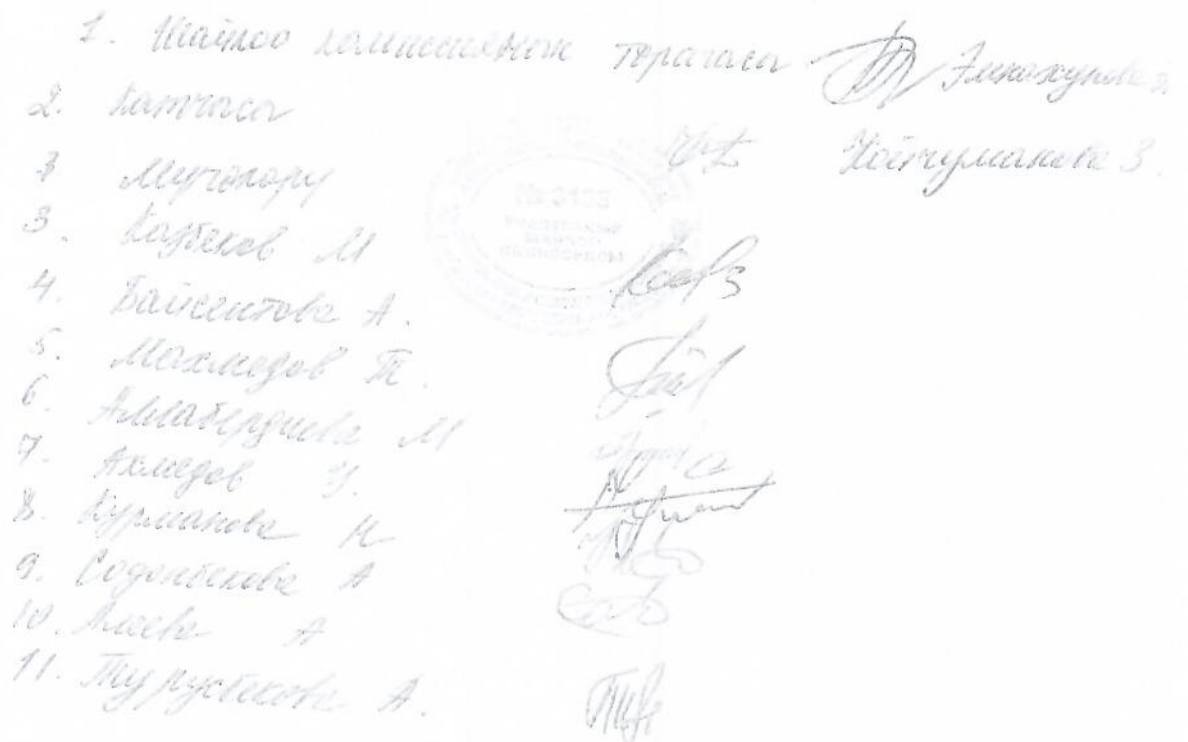 1. Шайлоо комиссиянын төрагасы Эминахунова Э.
2. Катчысы Койчуманова З.
3 Мүчөлөрү
3. Казбеков М
4. Байсеитова А.
5. Махмедов Т.
6. Аллабердиева М
7. Ахмедов У.
8. Курманова Н
9. Содонбекова А
10. Алиева А
11. Турусбекова А.
№ 3135